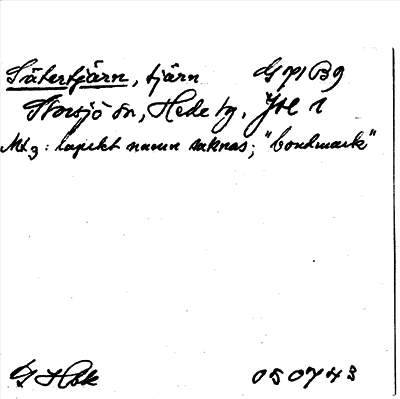 Sätertjärn, tjärn G 71 B 9
Storsjö sn, Hede tg, Jtl l
Mt 3: lapskt namn saknas; "bondmark"
G Hbk 050743